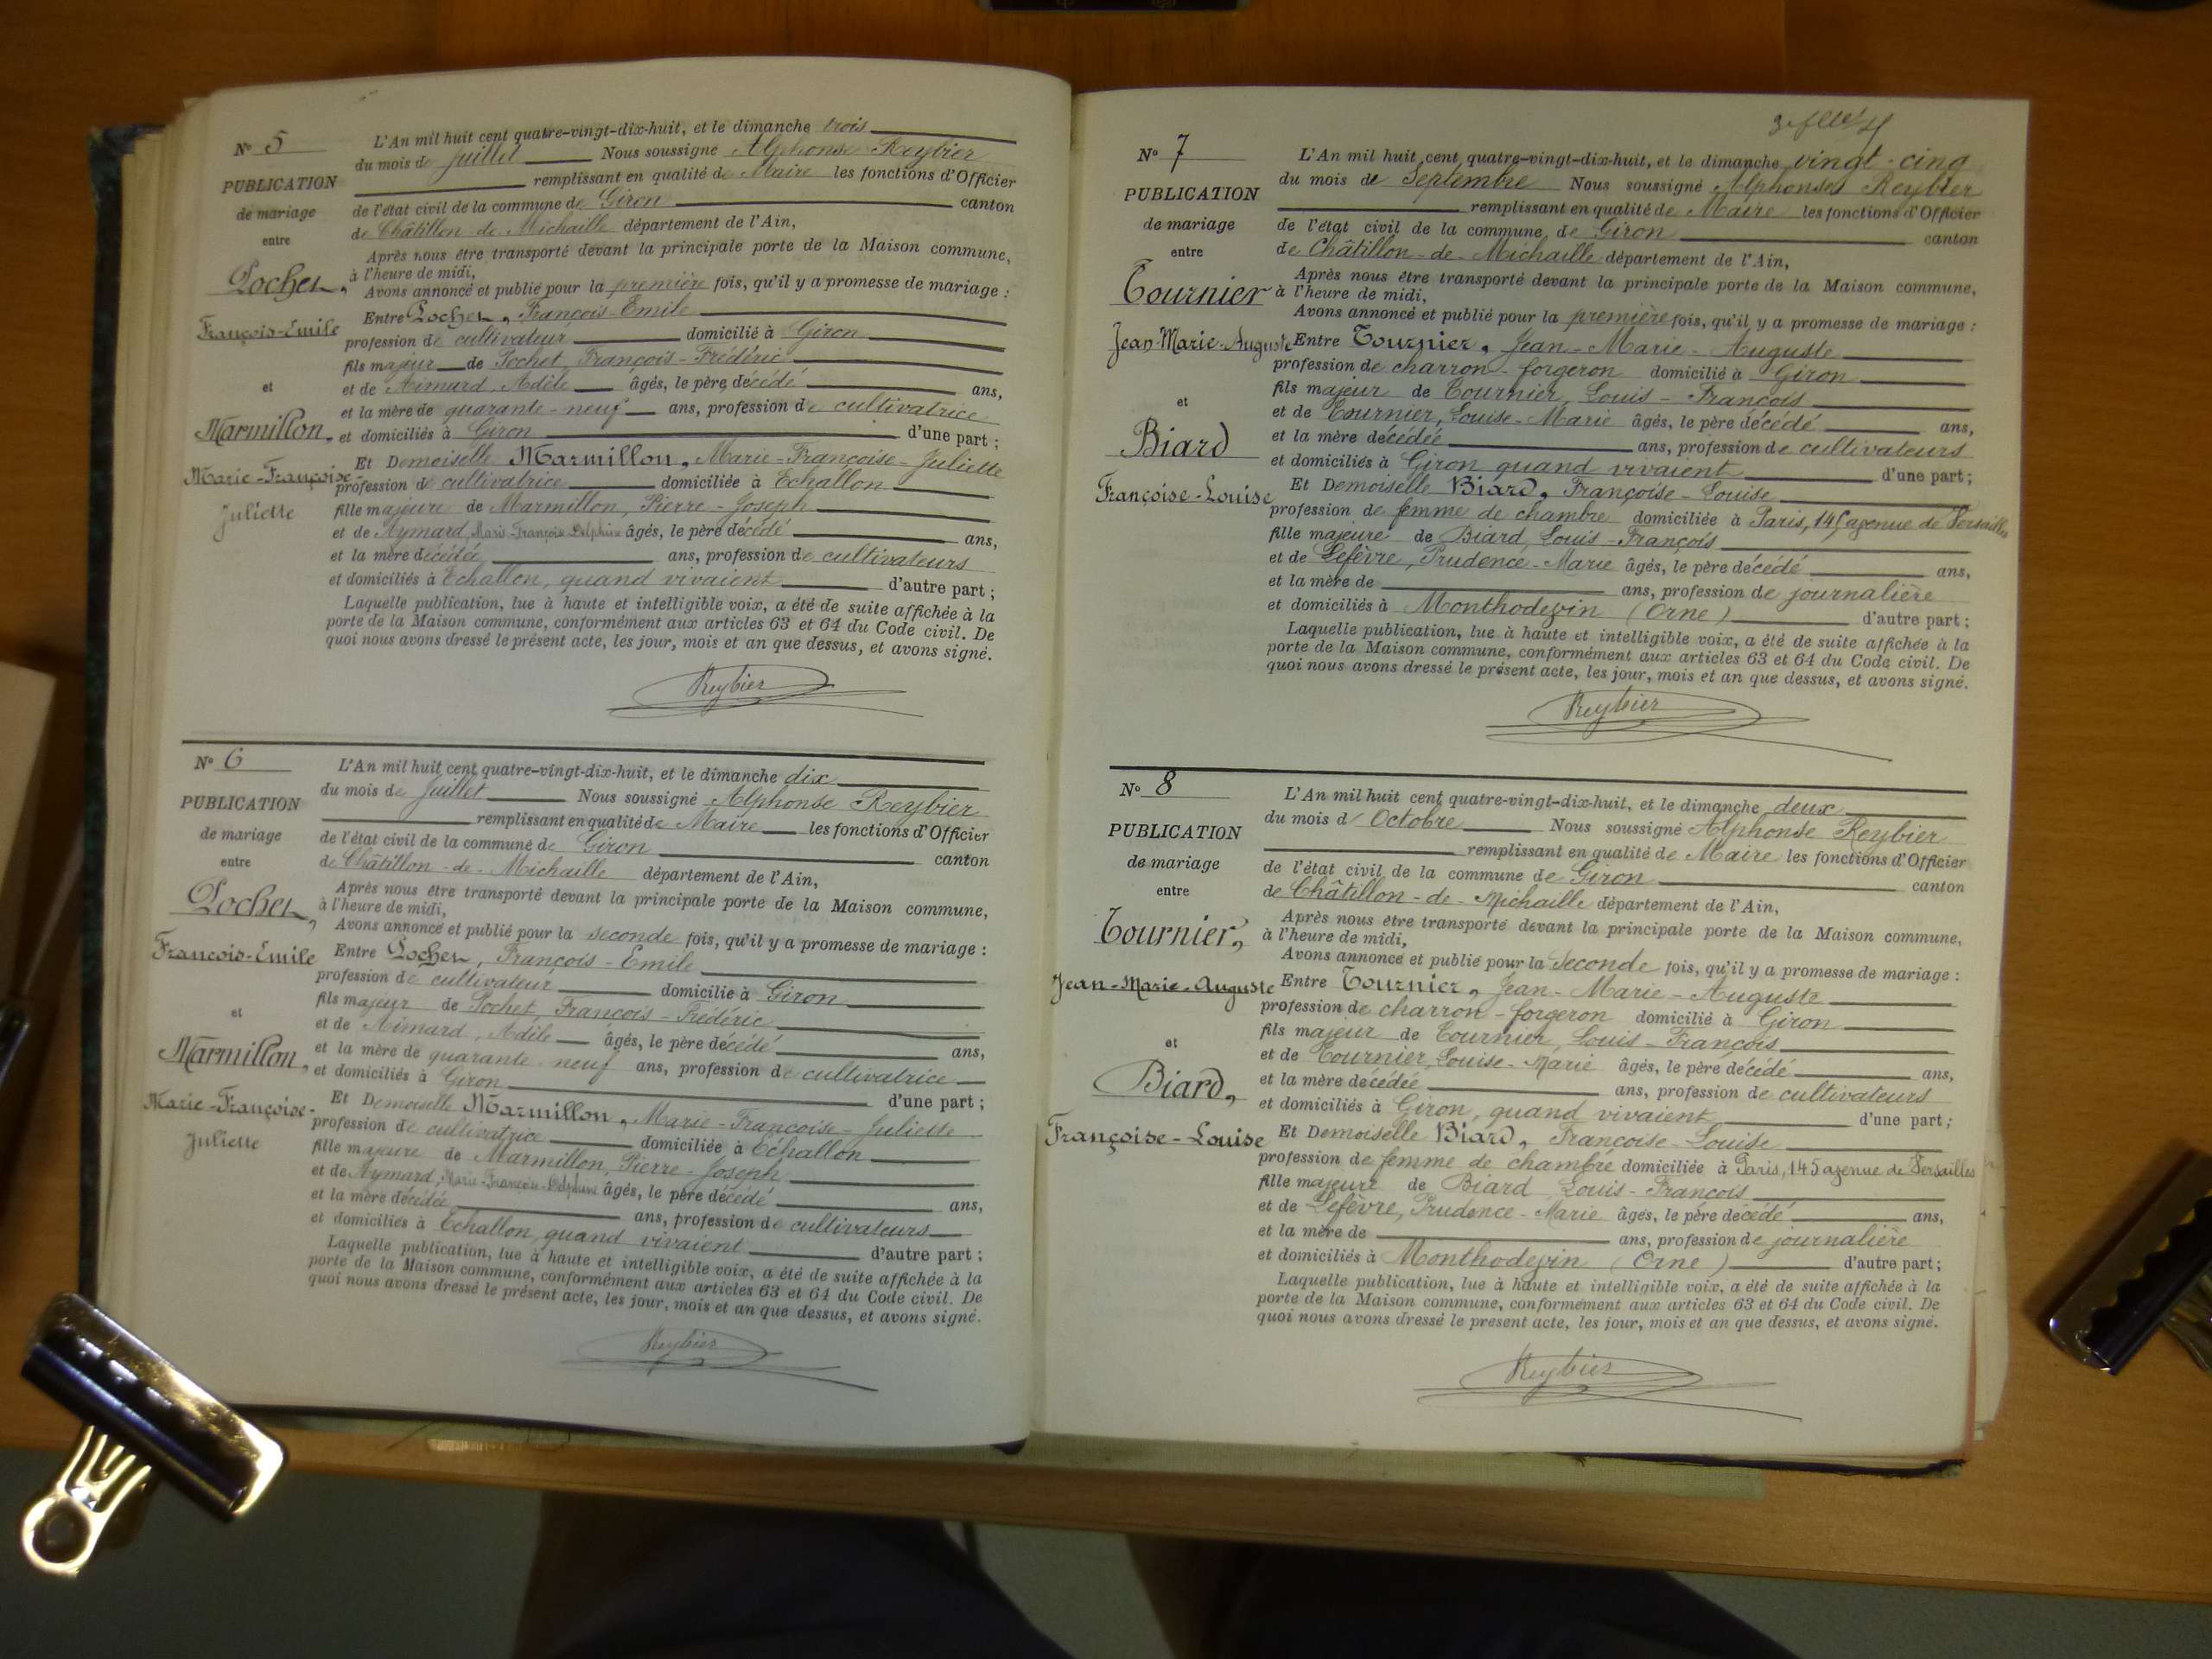 N° 5
PUBLICATION
de mariage
entre
Pochet,
François-Emile
et
Marmillon,
Marie-Françoise-
Juliette
L'An mil huit cent quatre-vingt-dix-huit, et le dimanche trois
du mois de Juillet Nous soussigné Alphonse Reybier
remplissant en qualité de Maire les fonctions d'Officier
de l'état civil de la commune de Giron canton
de Châtillon-de-Michaille département de l'Ain,
Après nous être transporté devant la principale porte de la Maison commune,
à l'heure de midi,
Avons annoncé et publié pour la première fois, qu'il y a promesse de mariage :
Entre Pochet, François-Emile
profession de cultivateur domicilié à Giron
fils majeur de Pochet, François-Frédéric
et de Aimard, Adèle âgés, le père décédé ans,
et la mère de quarante-neuf ans, profession de cultivatrice
et domiciliés à Giron d'une part ;
Et Demoiselle Marmillon, Marie-Françoise-Juliette
profession de cultivatrice domiciliée à Echallon
fille majeure de Marmillon, Pierre-Joseph
et de Aymard, Marie-Françoise-Delphine âgés, le père décédé ans,
et la mère décédée ans, profession de cultivateurs
et domiciliés à Echallon, quand vivaient d'autre part ;
Laquelle publication, lue à haute et intelligible voix, a été de suite affichée à la
porte de la Maison commune, conformément aux articles 63 et 64 du Code civil. De
quoi nous avons dressé le présent acte, les jour, mois et an que dessus, et avons signé.
Reybier
N° 6
PUBLICATION
de mariage
entre
Pochet,
François-Emile
et
Marmillon,
Marie-Françoise-
Juliette
L'An mil huit cent quatre-vingt-dix-huit, et le dimanche dix
du mois de Juillet Nous soussigné Alphonse Reybier
remplissant en qualité de Maire les fonctions d'Officier
de l'état civil de la commune de Giron canton
de Châtillon-de-Michaille département de l'Ain,
Après nous être transporté devant la principale porte de la Maison commune,
à l'heure de midi,
Avons annoncé et publié pour la seconde fois, qu'il y a promesse de mariage :
Entre Pochet, François-Emile
profession de cultivateur domicilié à Giron
fils majeur de Pochet, François-Frédéric
et de Aimard, Adèle âgés, le père décédé ans,
et la mère de quarante-neuf ans, profession de cultivatrice
et domiciliés à Giron d'une part ;
Et Demoiselle Marmillon, Marie-Françoise-Juliette
profession de cultivatrice domiciliée à Échallon
fille majeure de Marmillon, Pierre-Joseph
et de Aymard, Marie-Françoise-Delphine âgés, le père décédé ans,
et la mère décédée ans, profession de cultivateurs
et domiciliés à Echallon, quand vivaient d'autre part ;
Laquelle publication, lue à haute et intelligible voix, a été de suite affichée à la
porte de la Maison commune, conformément aux articles 63 et 64 du Code civil. De
quoi nous avons dressé le présent acte, les jour, mois et an que dessus, et avons signé.
Reybier
N° 7
PUBLICATION
de mariage
entre
Tournier
Jean-Marie-Auguste
et
Biard
Françoise-Louise
L'An mil huit cent quatre-vingt-dix-huit, et le dimanche vingt-cinq
du mois de Septembre Nous soussigné Alphonse Reybier
remplissant en qualité de Maire les fonctions d'Officier
de l'état civil de la commune de Giron canton
de Châtillon-de-Michaille département de l'Ain,
Après nous être transporté devant la principale porte de la Maison commune,
à l'heure de midi,
Avons annoncé et publié pour la première fois, qu'il y a promesse de mariage :
Entre Tournier, Jean-Marie-Auguste
profession de charron-forgeron domicilié à Giron
fils majeur de Tournier, Louis-François
et de Tournier, Louise-Marie âgés, le père décédé ans,
et la mère décédée ans, profession de cultivateurs
et domiciliés à Giron quand vivaient d'une part ;
Et Demoiselle Biard, Françoise-Louise
profession de femme de chambre domiciliée à Paris, 145 avenue de Versailles
fille majeure de Biard, Louis-François
et de Lefèvre, Prudence-Marie âgés, le père décédé ans,
et la mère de ans, profession de journalière
et domiciliés à Monthodevin (Orne) d'autre part ;
Laquelle publication, lue à haute et intelligible voix, a été de suite affichée à la
porte de la Maison commune, conformément aux articles 63 et 64 du Code civil. De
quoi nous avons dressé le présent acte, les jour, mois et an que dessus, et avons signé.
Reybier
N° 8
PUBLICATION
de mariage
entre
Tournier,
Jean-Marie-Auguste
et
Biard,
Françoise-Louise
L'An mil huit cent quatre-vingt-dix-huit, et le dimanche deux
du mois d'Octobre Nous soussigné Alphonse Reybier
remplissant en qualité de Maire les fonctions d'Officier
de l'état civil de la commune de Giron canton
de Châtillon-de-Michaille département de l'Ain,
Après nous être transporté devant la principale porte de la Maison commune,
à l'heure de midi,
Avons annoncé et publié pour la Seconde fois, qu'il y a promesse de mariage :
Entre Tournier, Jean-Marie-Auguste
profession de charron-forgeron domicilié à Giron
fils majeur de Tournier, Louis-François
et de Tournier, Louise-Marie âgés, le père décédé ans,
et la mère décédée ans, profession de cultivateurs
et domiciliés à Giron, quand vivaient d'une part ;
Et Demoiselle Biard, Françoise-Louise
profession de femme de chambre domiciliée à Paris, 145 avenue de Versailles
fille majeure de Biard Louis-François
et de Lefèvre, Prudence-Marie âgés, le père décédé ans,
et la mère de ans, profession de journalière
et domiciliés à Monthodevin (Orne) d'autre part ;
Laquelle publication, lue à haute et intelligible voix, a été de suite affichée à la
porte de la Maison commune, conformément aux articles 63 et 64 du Code civil. De
quoi nous avons dressé le présent acte, les jour, mois et an que dessus, et avons signé.
Reybier